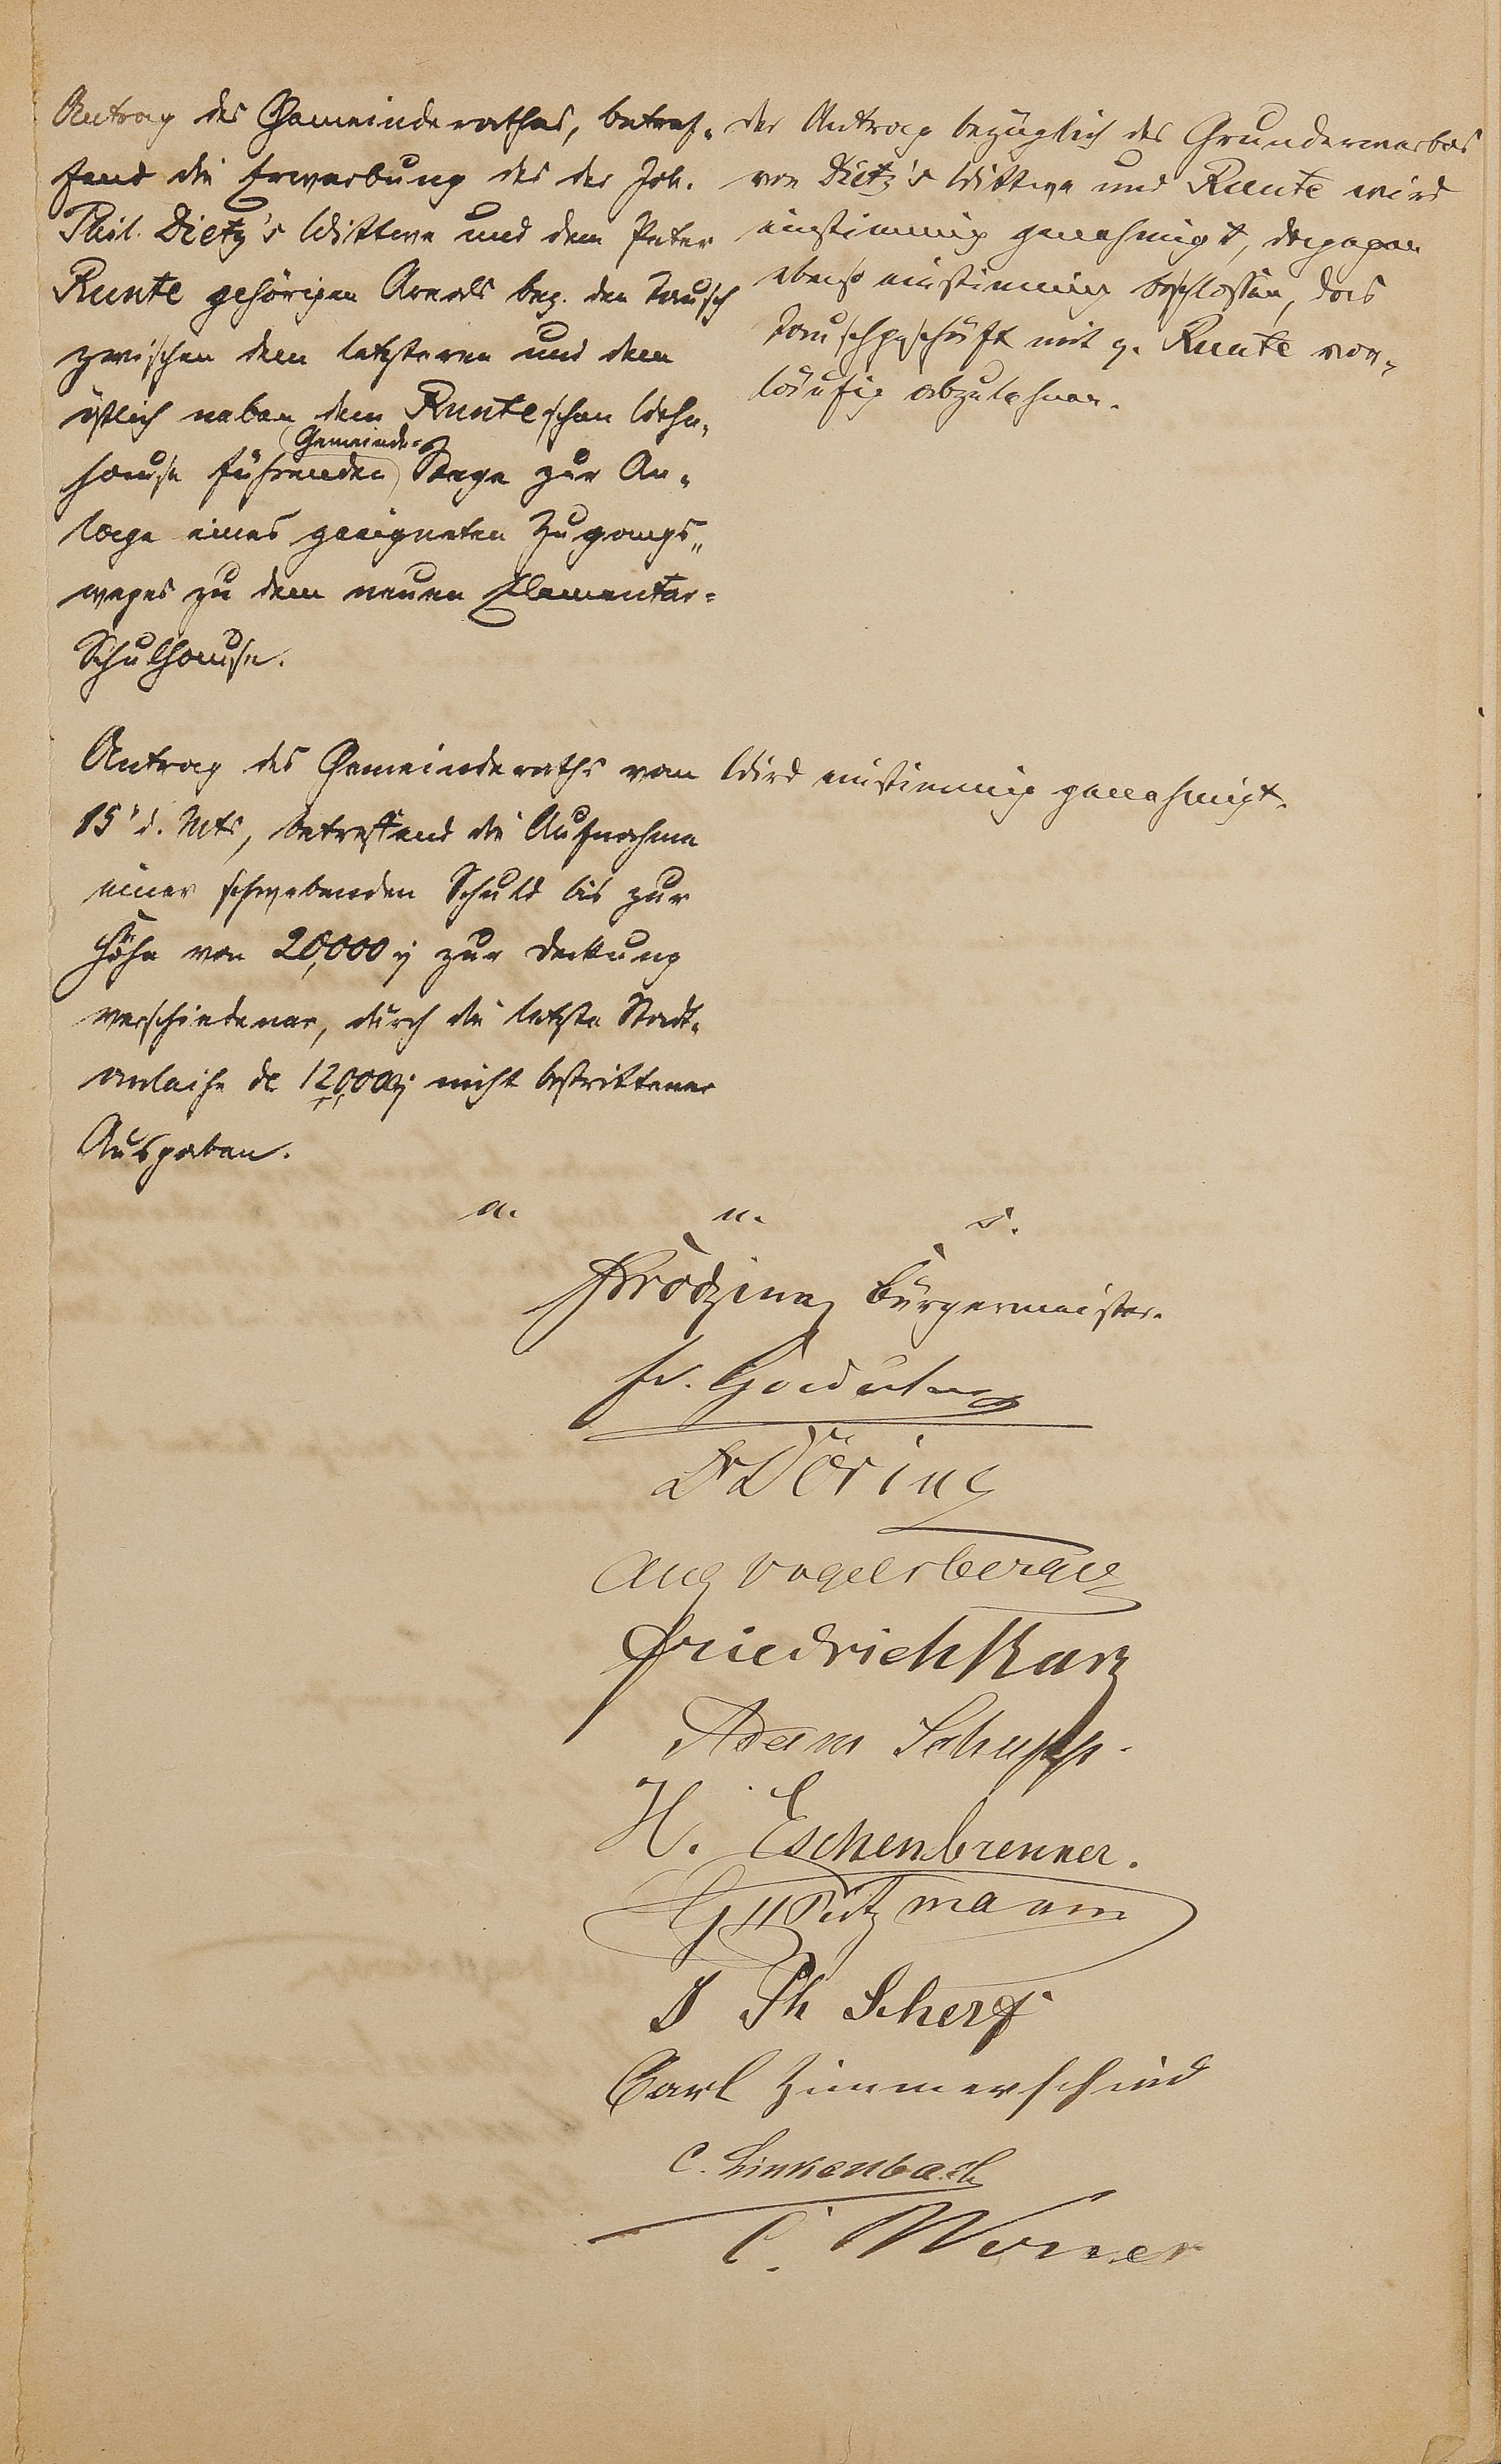 Antrag des Gemeinderathes, betref-
fend die Erwerbung des der Joh.
Phil. Dietz's Wittwe und dem Peter
Runte gehörigen Areals bez. den Tausch
zwischen dem letzteren und dem
östlich neben dem Runte'schen Wohn-
hause führenden Gemeinde-Wege zur An-
lage eines geeigneten Zugangs-
weges zu dem neuen Elementar-
Schulhause.
der Antrag bezüglich des Grunderwerbes
von Dietz's Wittwe und Runte wird
einstimmig genehmigt, dagegen
ebenso einstimmig beschlossen, das
Tauschgeschäft mit g. Runte vor-
läufig abzulehnen.
Antrag des Gemeinderaths vom
15' d. Mts, betreffend die Aufnahme
einer schwebenden Schuld bis zur
Höhe von 20,000 zur Deckung
verschiedener, durch die letzte Stadt-
anleihe de 120,000 nicht bestrittener
Ausgaben.
Wird einstimmig genehmigt.
a. u. s.
Bürgermeister.
Fr.
Dr Döring
Aug Vogelsberger
Friedrich Kurz
Adam Schupp.
H. Eschenbrenner.
G H Pützmann
J Ph Scherf
Carl Zimmerschied
C. Linkenbach
C. Werner